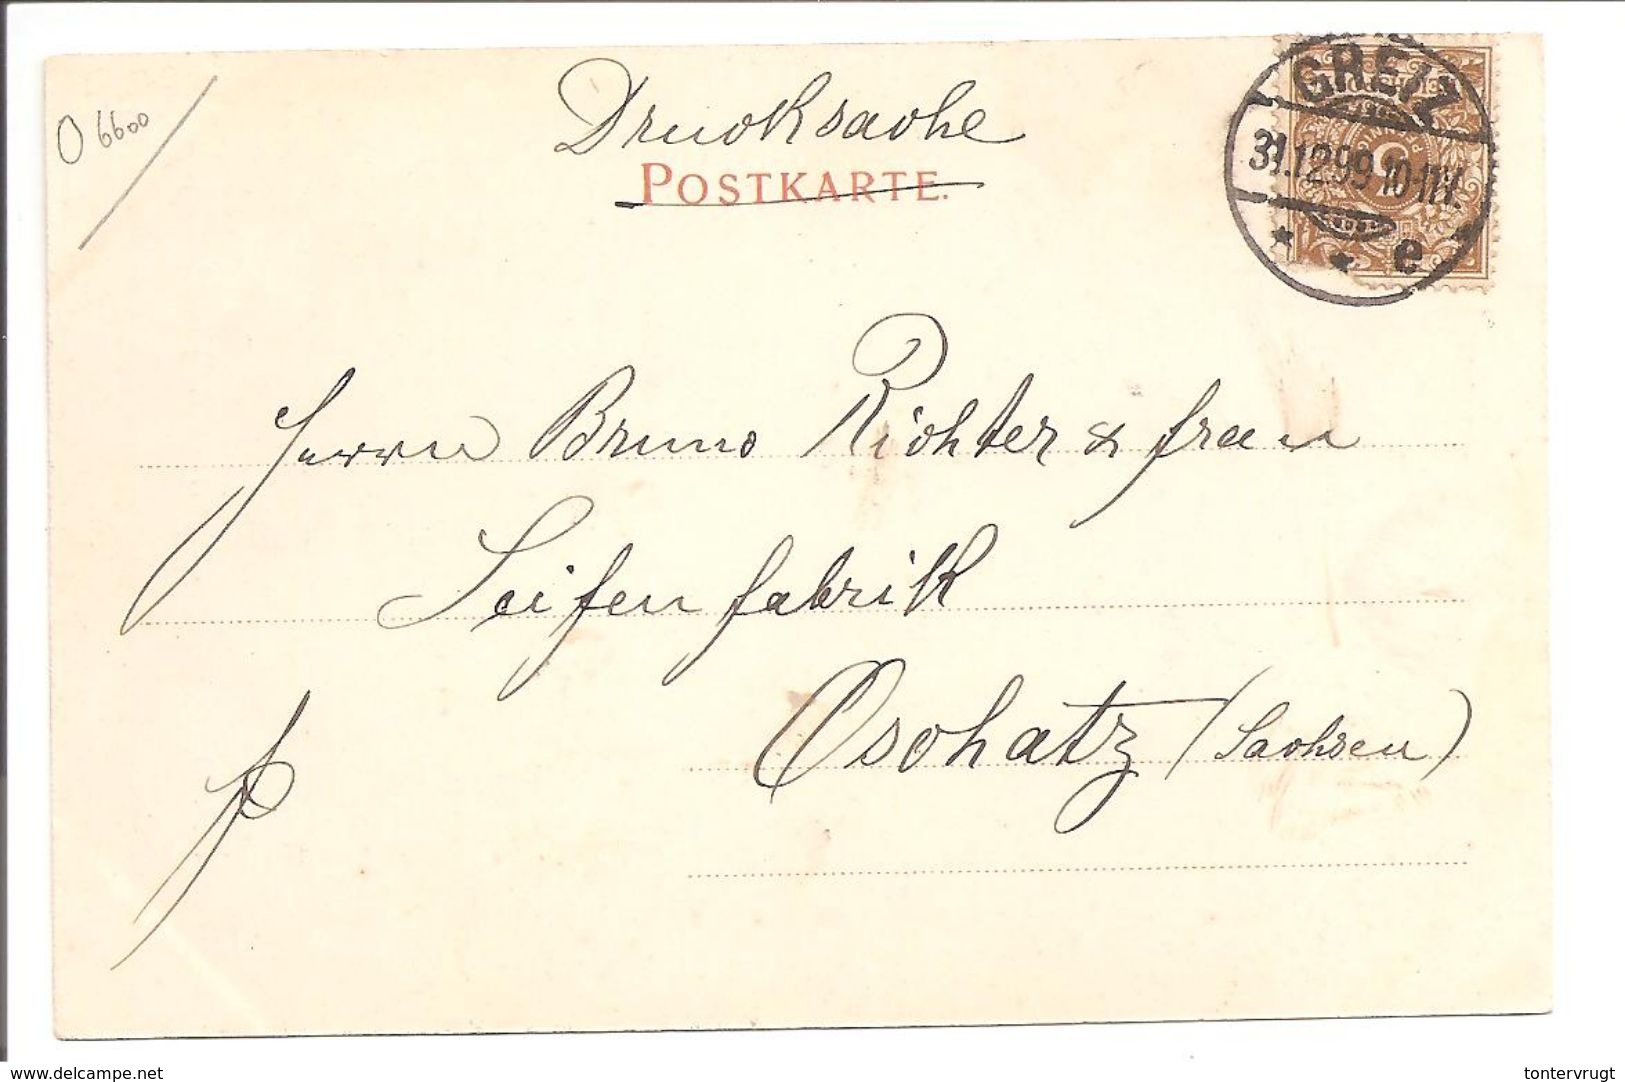 O 6600
Drucksache
POSTKARTE.
GREIZ
31.12.99 10-11V.
e
Herrn Bruno Richter & frau
Seifenfabrik
Oschatz (Sachsen)
www.delcampe.net
tontervrugt